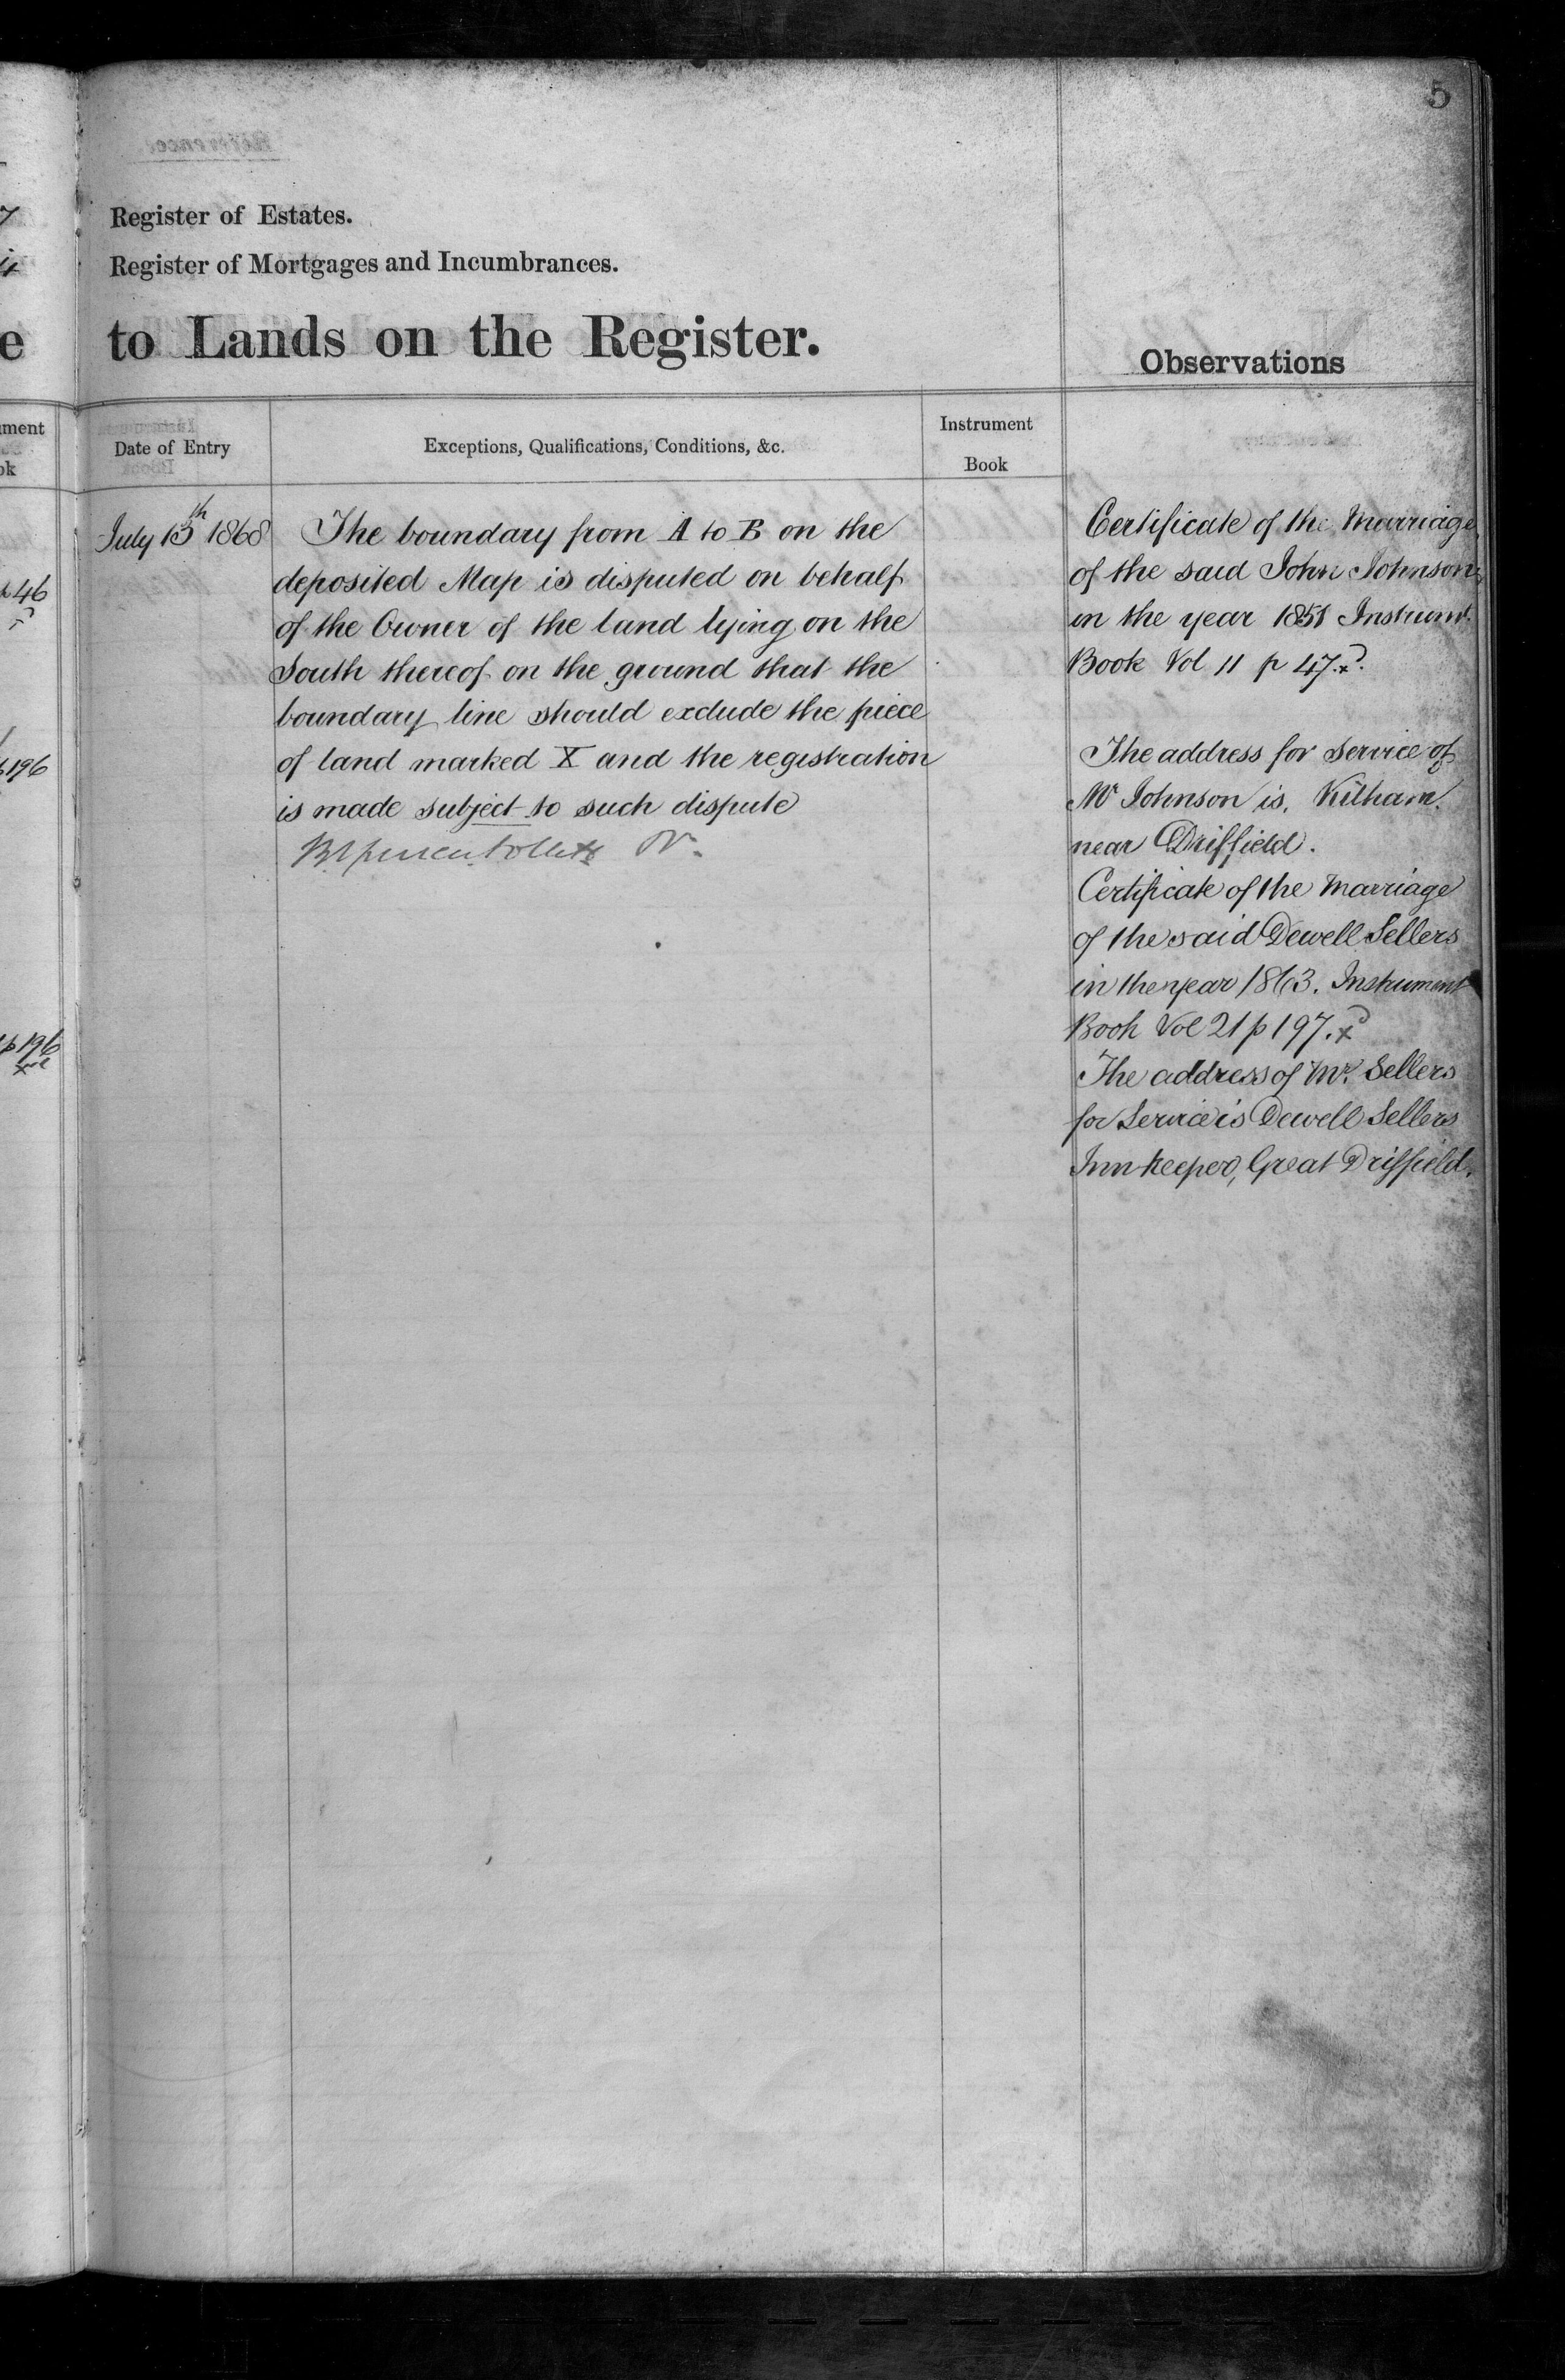 5
Register of Estates.
Register of Mortgages and Incumbrances.
e to Lands on the Register.
Observations
Date of Entry
Exceptions, Qualifications, Conditions, &c.
Instrument
Book
July 15th 1868
The boundary from A to B on the
deposited Map is disputed on behalf
of the Owner of the land lying on the
South thereof on the ground that the
boundary line should exclude the piece
of land marked X and the registration
is made subject to such dispute
Certificate of the Marriage
of the said John Johnson
in the year 1851 Instrumt.
Book Vol 11 p 47.
The address for Service of
Mr Johnson is, Kilham
near Driffield.
Certificate of the Marriage
of the said Dewell Sellers
in the year 1863. Instrument
Book Vol 21 p 197.
The address of Mr. Sellers
for Service is Dewell Sellers
Inn-keeper, Great Driffield.
p 46
196
p 196